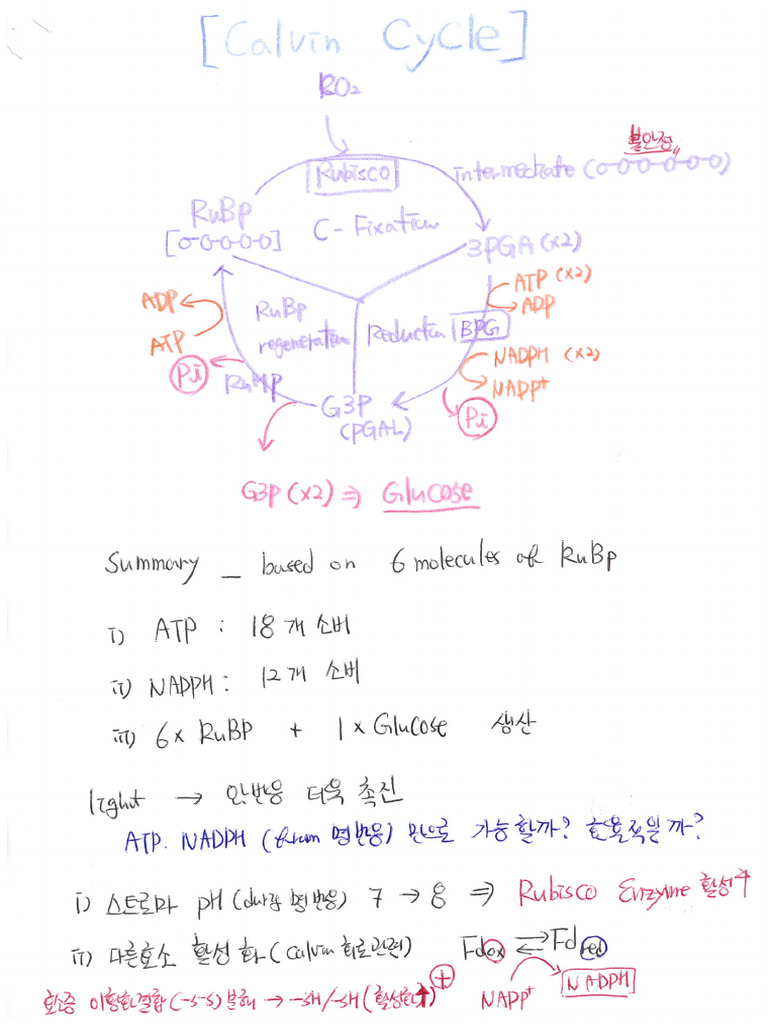 [Calvin Cycle]
CO2
불안정
Rubisco
intermediate (o-o-o-o-o-o)
RuBp
[o-o-o-o-o]
C-Fixation
3PGA (x2)
ATP (x2)
ADP
ADP
ATP
RuBp
regeneration
Reduction
BPG
NADPH (x2)
NADP+
Pi
RuMP
G3P
(PGAL)
Pi
G3P (x2) ⇒ Glucose
Summary _ based on 6 molecules of RuBp
i) ATP : 18개 소비
ii) NADPH : 12개 소비
iii) 6x RuBP + 1x Glucose 생산
light → 암반응 더욱 촉진
ATP. NADPH (from 명반응) 만으로 가능할까? 효율적일까?
i) 스트로마 pH (during 명반응) 7 → 8 ⇒ Rubisco Enzyme 활성↑
ii) 다른효소 활성화 (Calvin 회로관련)
Fdox ⇌ Fdred
NADP+
NADPH
이황화결합 (-S-S) 분해 → -SH/-SH (활성화↑) +